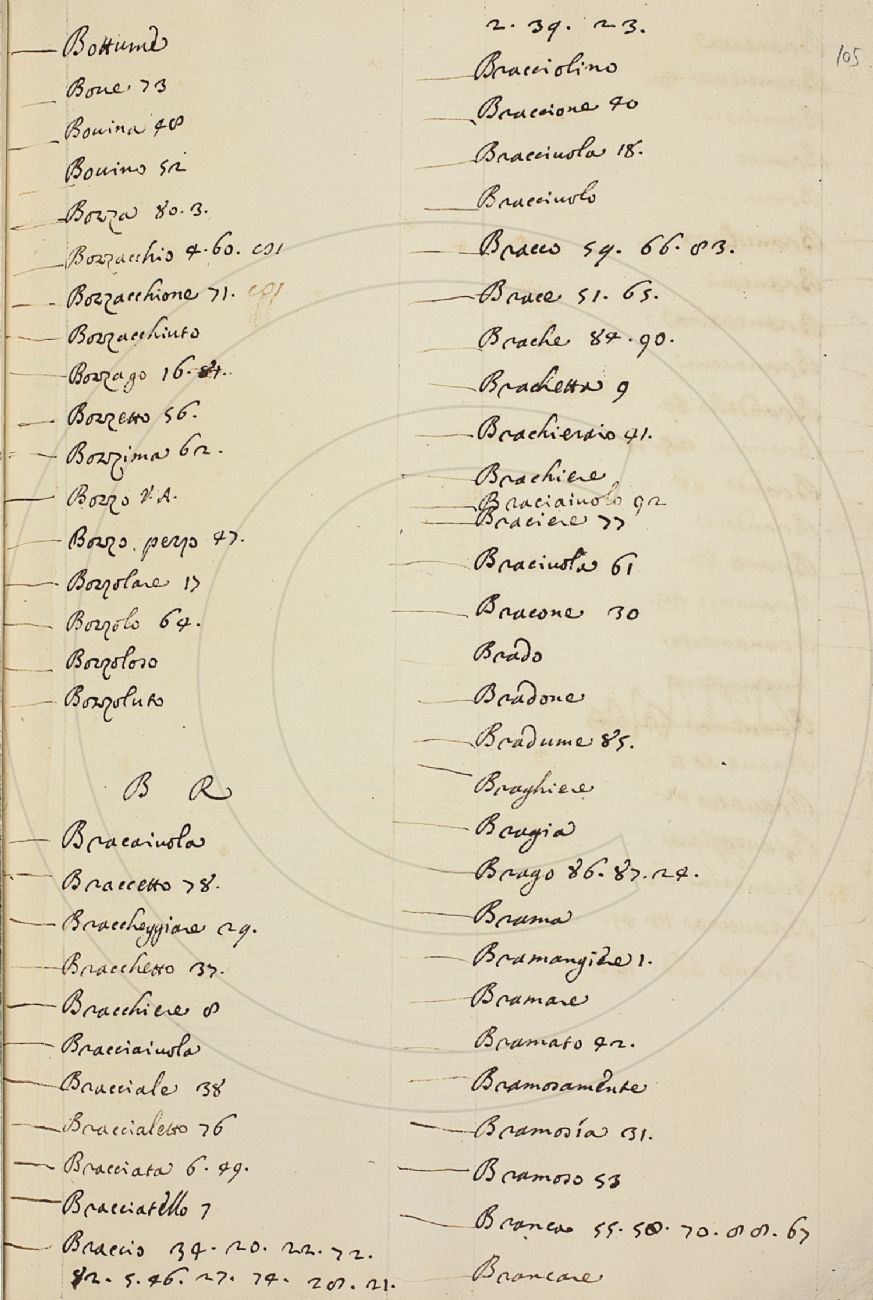 105
Bottume
Boue 73
Bouina 48
Bouino 52
Bozza 80. 3.
Bozzacchio 4. 60.
Bozzacchione 71.
Bozzacchiuto
Bozzago 16.
Bozzetto 56.
Bozzima 62.
Bozzo V. A.
Bozzo. pezzo 47.
Bozzolare 17
Bozzolo 64.
Bozzoloso
Bozzoluto
B R
Bracaiuola
Braccetto 78.
Braccheggiare 29.
Bracchetto 37.
Bracchiere 8
Bracciaiuola
Bracciale 38
Braccialetto 76
Bracciata 6. 49.
Bracciatello 7
Braccio 34. 20. 22. 72.
82. 5. 46. 27. 74. 28. 21.
2. 39. 23.
Bracciolino
Braccione 40
Bracciuola 18.
Bracciuolo
Bracco 59. 66. 83.
Brace 51. 65.
Brache 84. 90.
Brachetta 9
Brachieraio 41.
Brachiere
Braciaiuolo 92
Braciere 77
Braciuola 61
Bracone 30
Brado
Bradone
Bradume 85.
Braghiere
Bragia
Brago 86. 87. 24.
Brama
Bramangière 1.
Bramare
Bramato 42.
Bramosamente
Bramosía 31.
Bramoso 53
Branca 55. 50. 70. 88. 67
Brancare